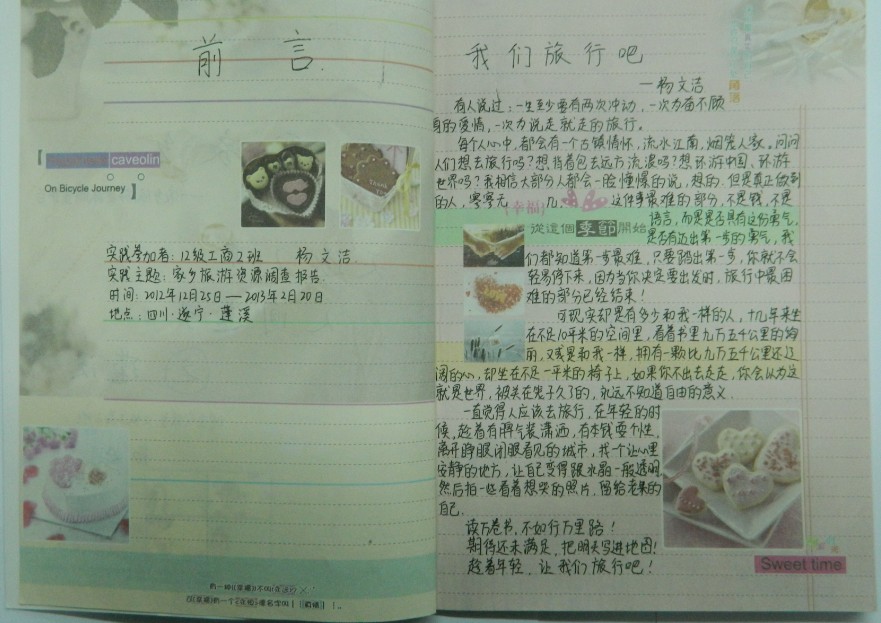 前言
caveolin
On Bicycle Journey
实践参加者：12级工商2班 杨文洁
实践主题：家乡旅游资源调查报告.
时间：2012年12月25日—2013年2月20日
地点：四川·遂宁·蓬溪
我们旅行吧
—杨文洁
有人说过：一生至少要有两次冲动，一次为奋不顾
身的爱情，一次为说走就走的旅行。
每个人心中，都会有一个古镇情怀，流水江南，烟笼人家，问问
人们想去旅行吗？想背着包去远方流浪吗？想环游中国、环游
世界吗？我相信大部分人都会一脸憧憬的说，想的.但是真正做到
的人，寥寥无几，这件事最难的部分，不是钱，不是
(幸福)
從這個季節開始
语言，而是是否具有这份勇气，
是否有迈出第一步的勇气，我
们都知道第一步最难，只要踏出第一步，你就不会
轻易停下来，因为当你决定要出发时，旅行中最困
难的部分已经结束！
可现实却是有多少和我一样的人，十几年来坐
在不足10平米的空间里，看着书里九万五千公里的绚
丽，又或是和我一样，拥有一颗比九万五千公里还辽
阔的心，却坐在不足一平米的椅子上，如果你不出去走走，你会以为这
就是世界，被关在笼子久了的，永远不知道自由的意义.
一直觉得人应该去旅行，在年轻的时
候，趁着有脾气装潇洒，有本钱耍个性，
离开睁眼闭眼看见的城市，找一个让心里
安静的地方，让自己变得跟水晶一般透明，
然后拍一些看着想哭的照片，留给老来的
自己.
读万卷书，不如行万里路！
期待还未满足，把明天写进地图！
趁着年轻，让我们旅行吧！
Sweet time